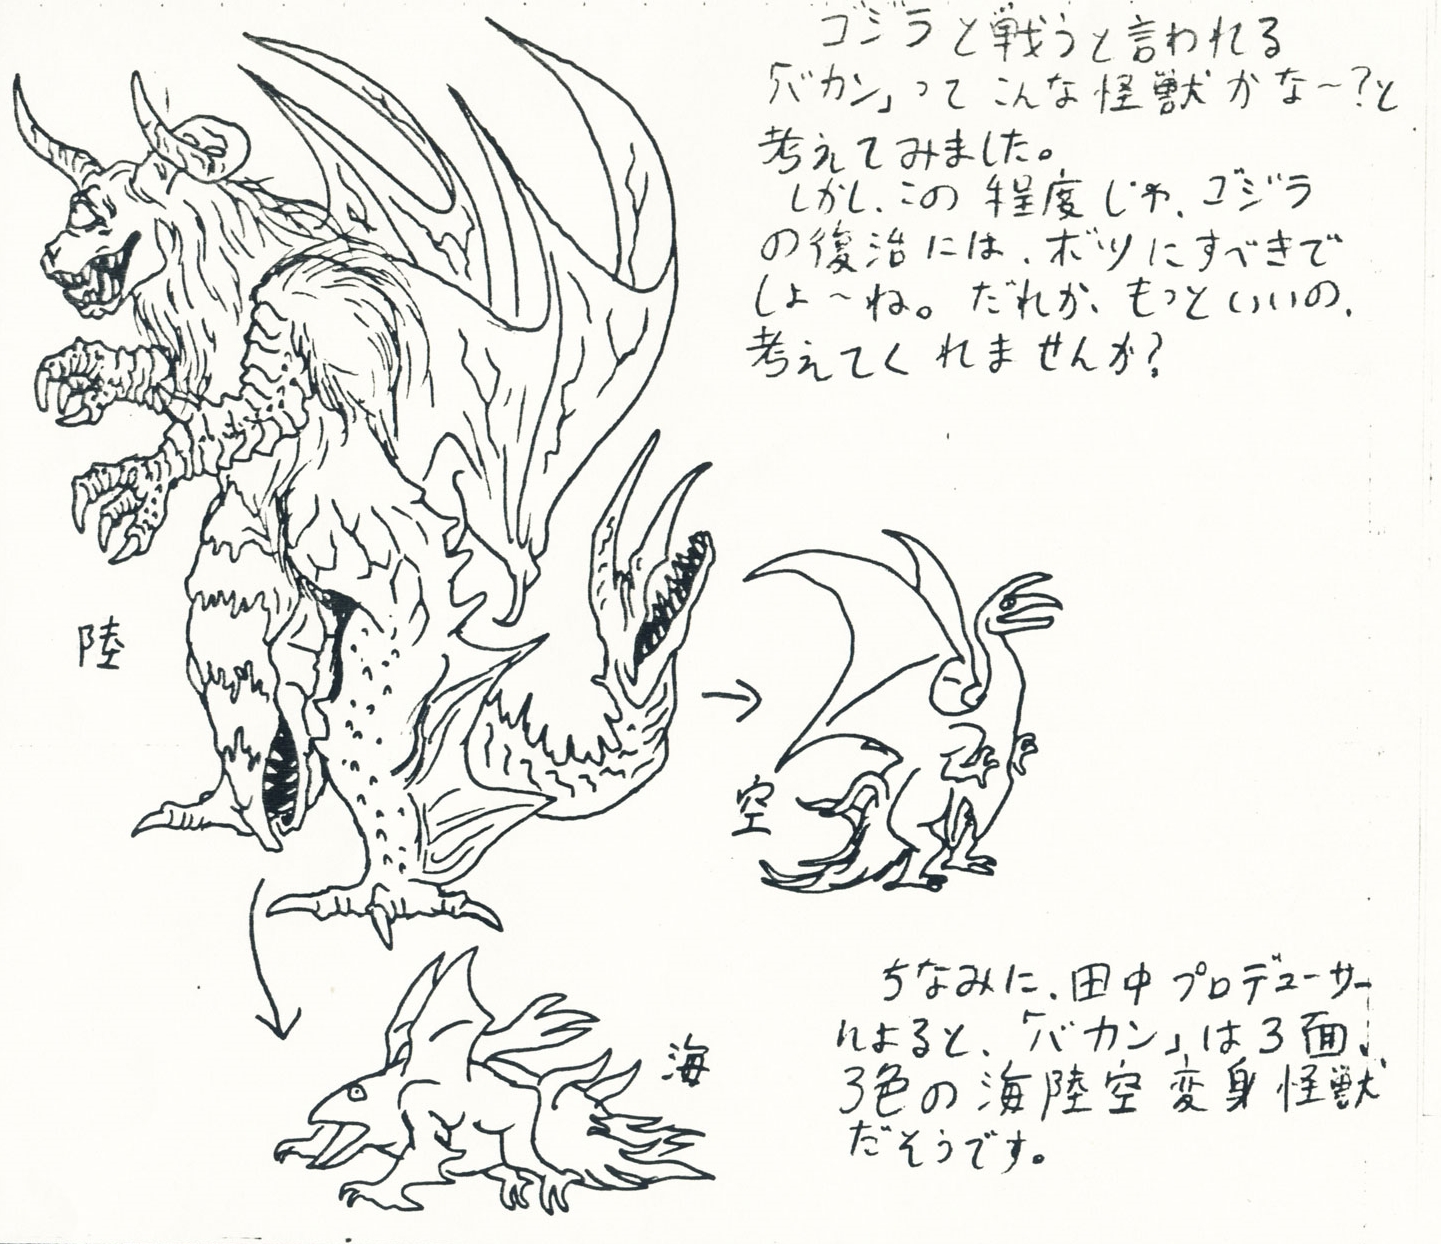 ゴジラと戦うと言われる
「バカン」ってこんな怪獣かな〜?と
考えてみました。
しかし、この程度じゃ、ゴジラ
の復治には、ボツにすべきで
しょ〜ね。だれか、もっといいの、
考えてくれませんか?
陸
空
海
ちなみに、田中プロデューサー
によると、「バカン」は3面、
3色の海陸空変身怪獣
だそうです。